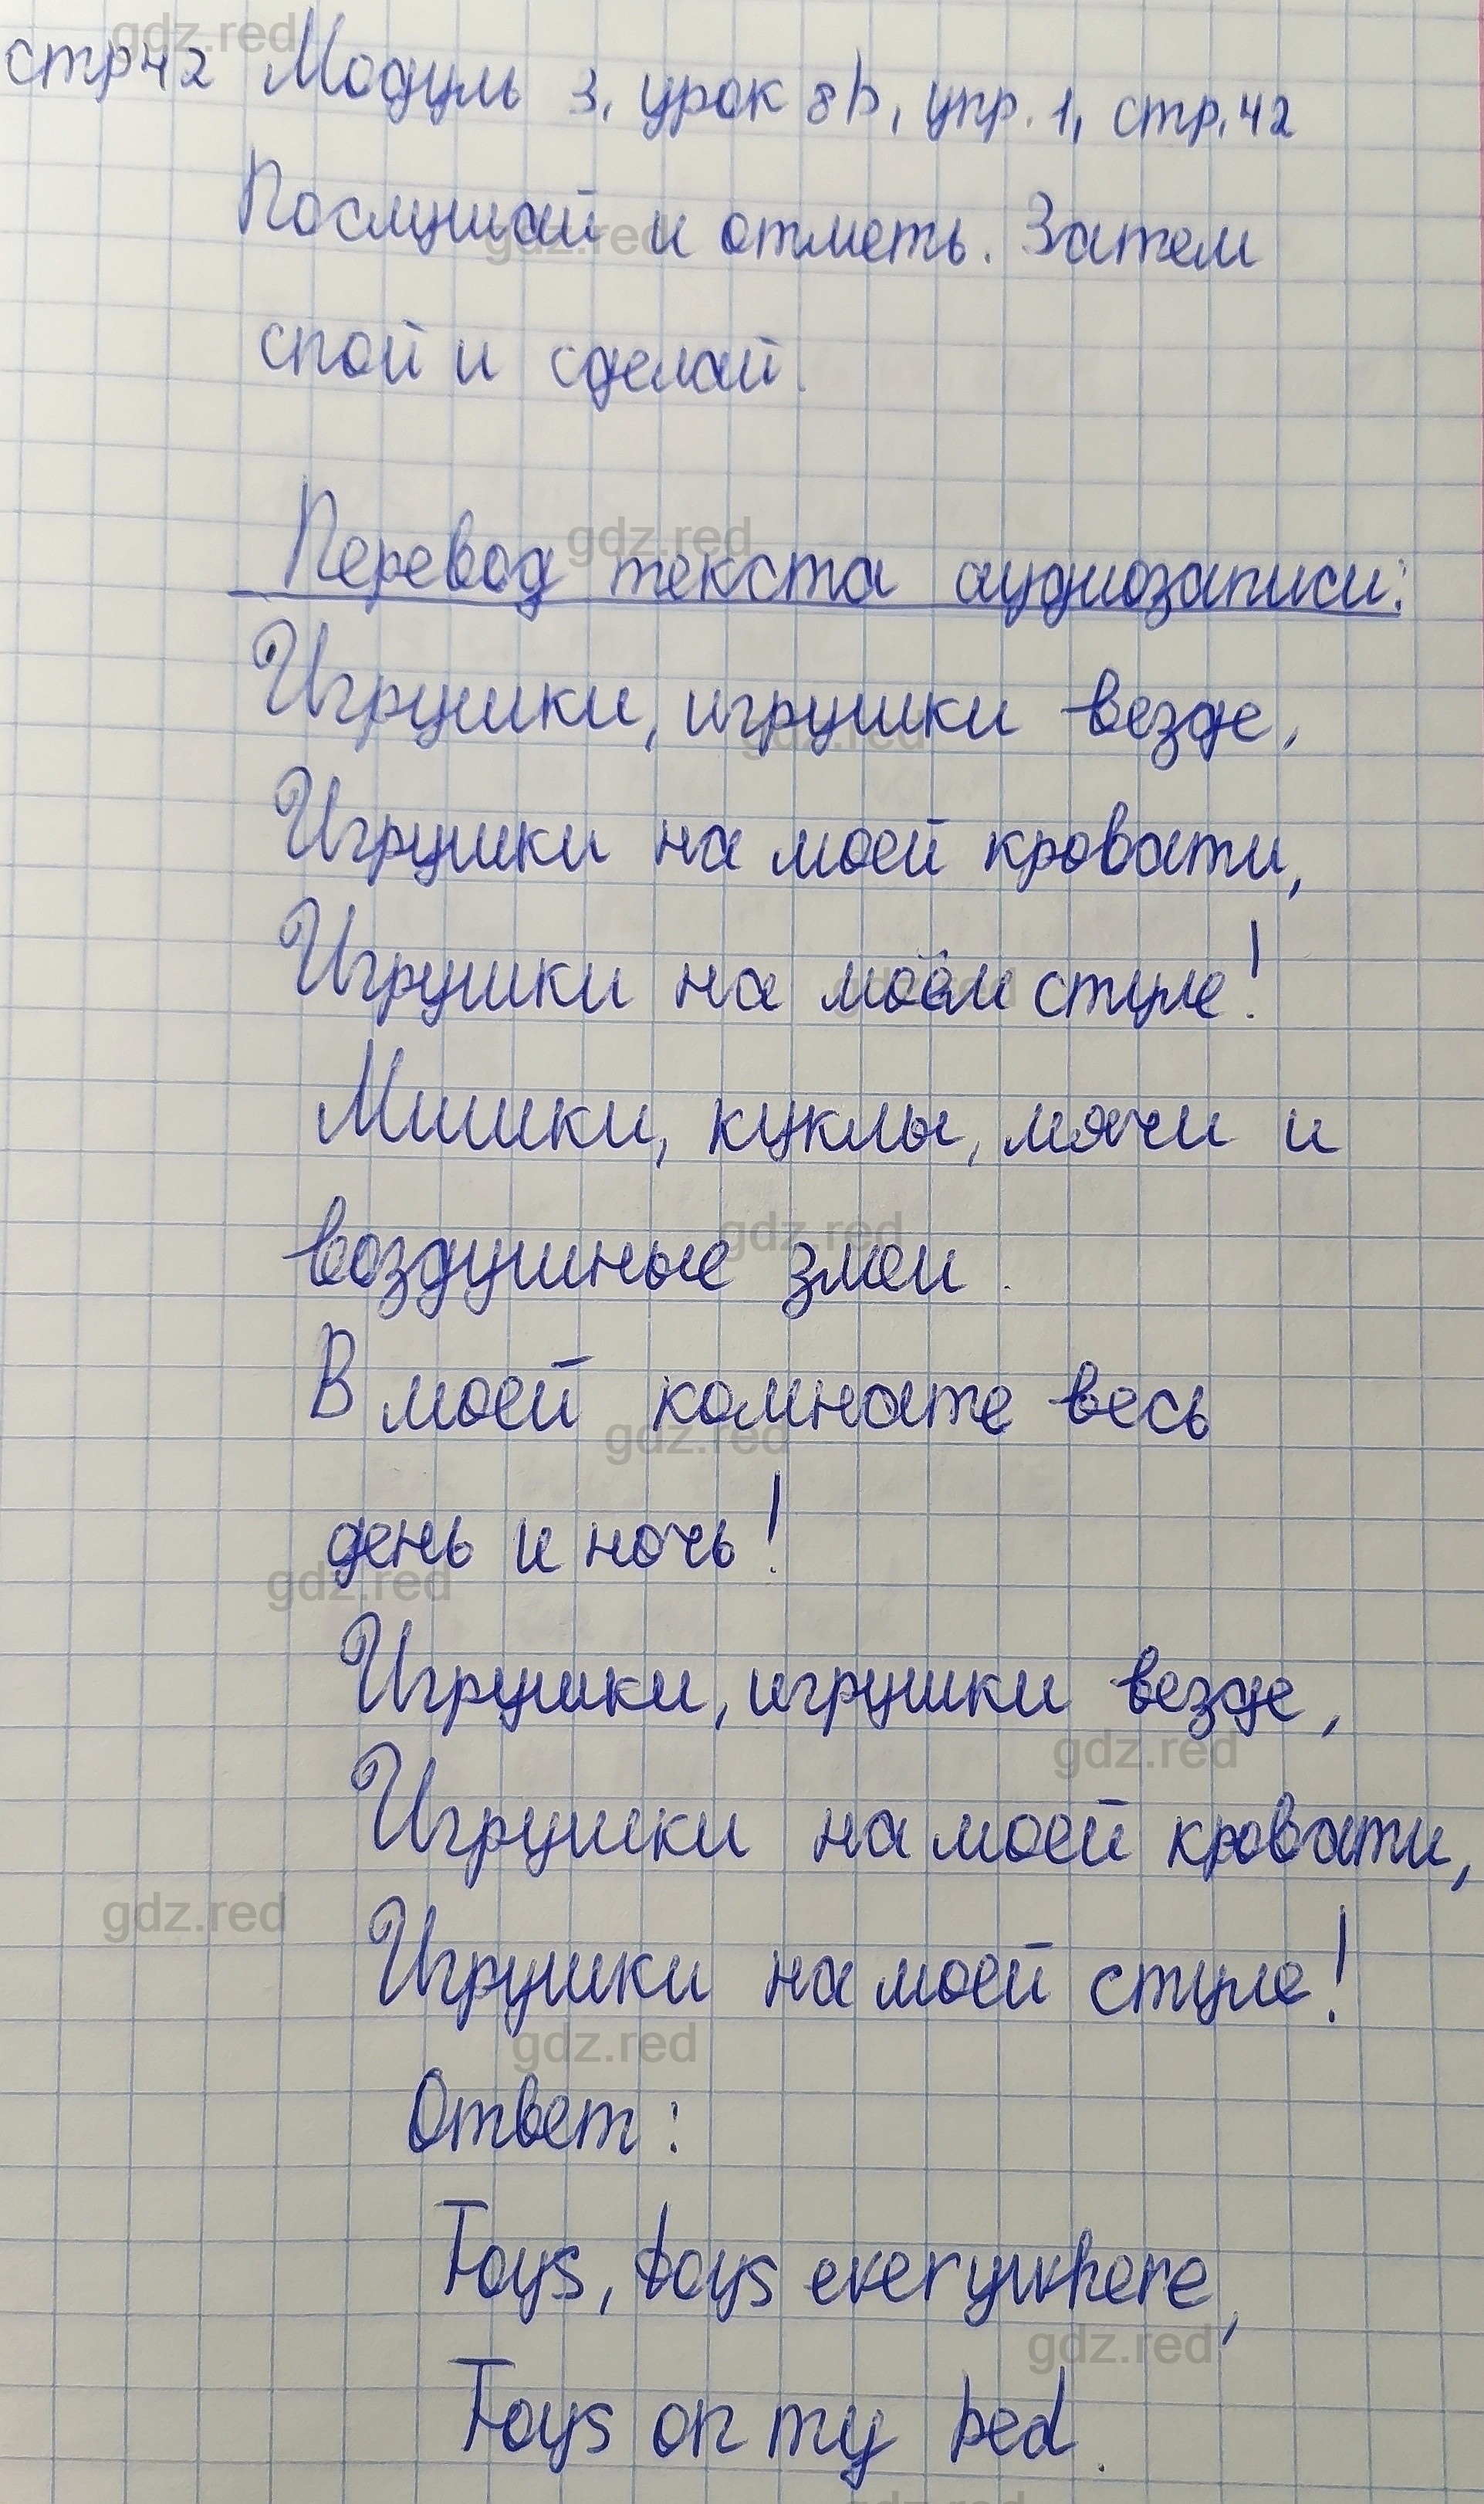 стр 42 Модуль 3, урок 8b, упр. 1, стр. 42
Послушай и отметь. Затем
спой и сделай.
Перевод текста аудиозаписи:
Игрушки, игрушки везде,
Игрушки на моей кровати,
Игрушки на моём стуле!
Мишки, куклы, мячи и
воздушные змеи.
В моей комнате весь
день и ночь!
Игрушки, игрушки везде,
Игрушки на моей кровати,
Игрушки на моей стуле!
Ответ:
Toys, toys everywhere,
Toys on my bed.
gdz.red
gdz.red
gdz.red
gdz.red
gdz.red
gdz.red
gdz.red
gdz.red
gdz.red
gdz.red
gdz.red
gdz.red
gdz.red